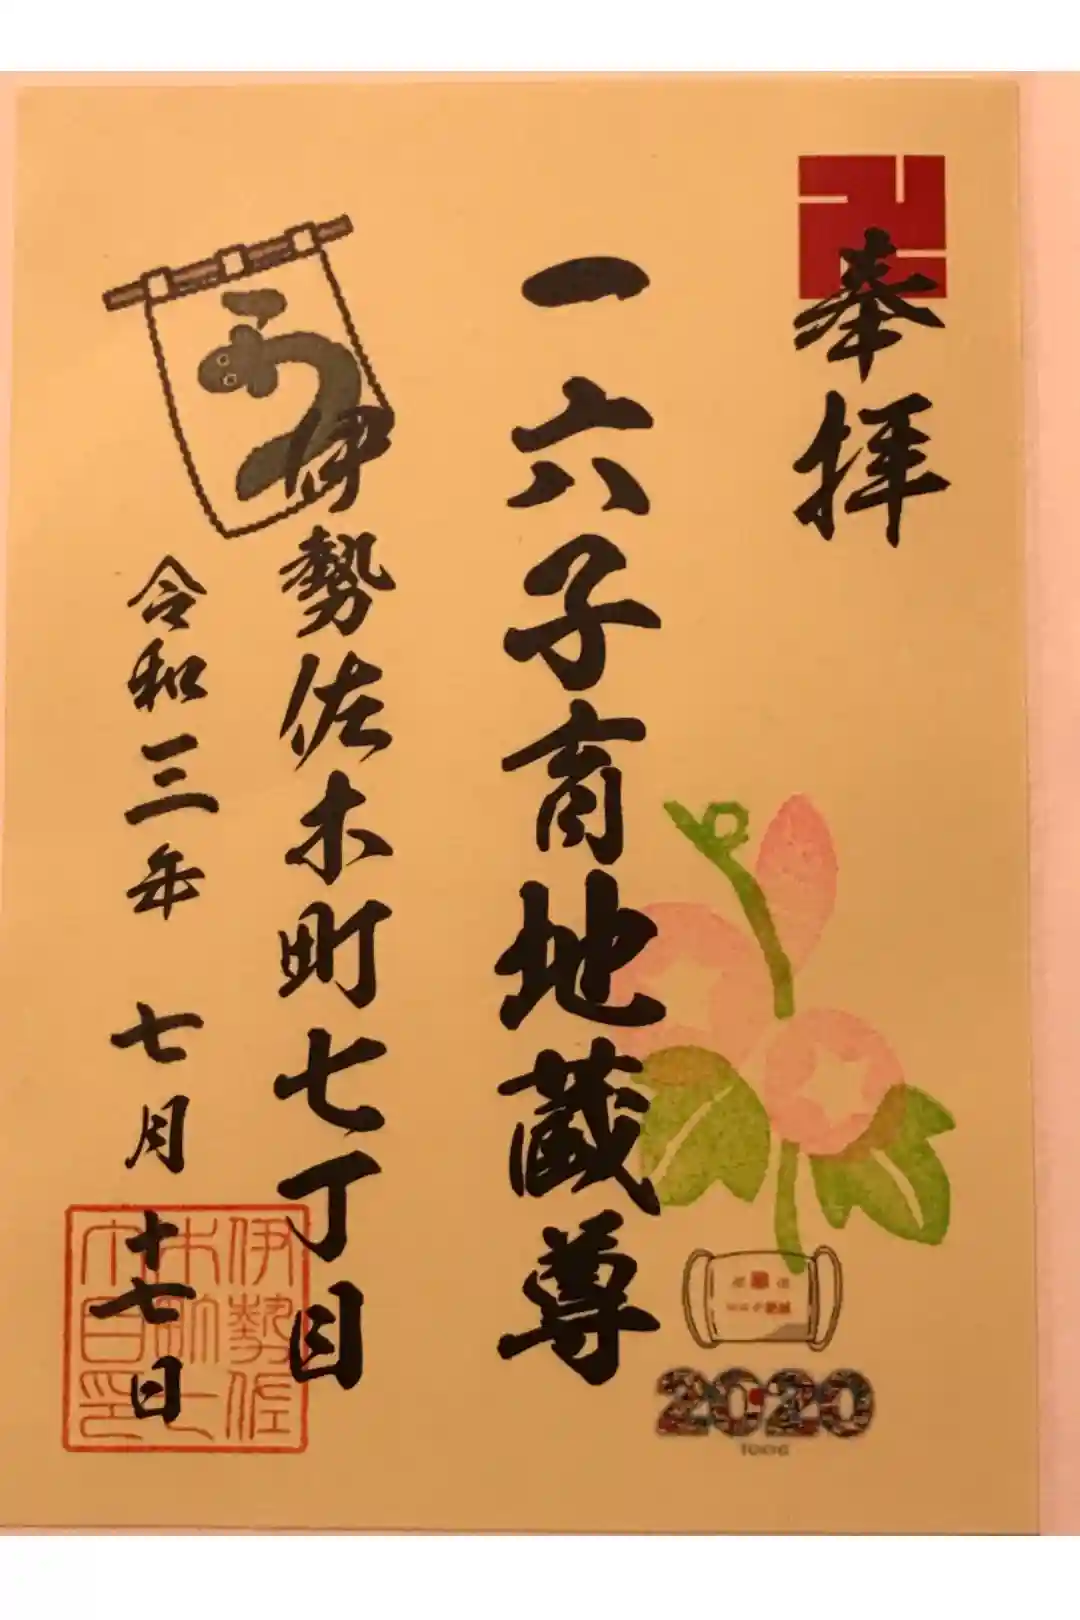 奉拝
一六子育地蔵尊
伊勢佐木町七丁目
令和三年 七月 十七日
う
伊勢佐
木町七
丁目印
2020